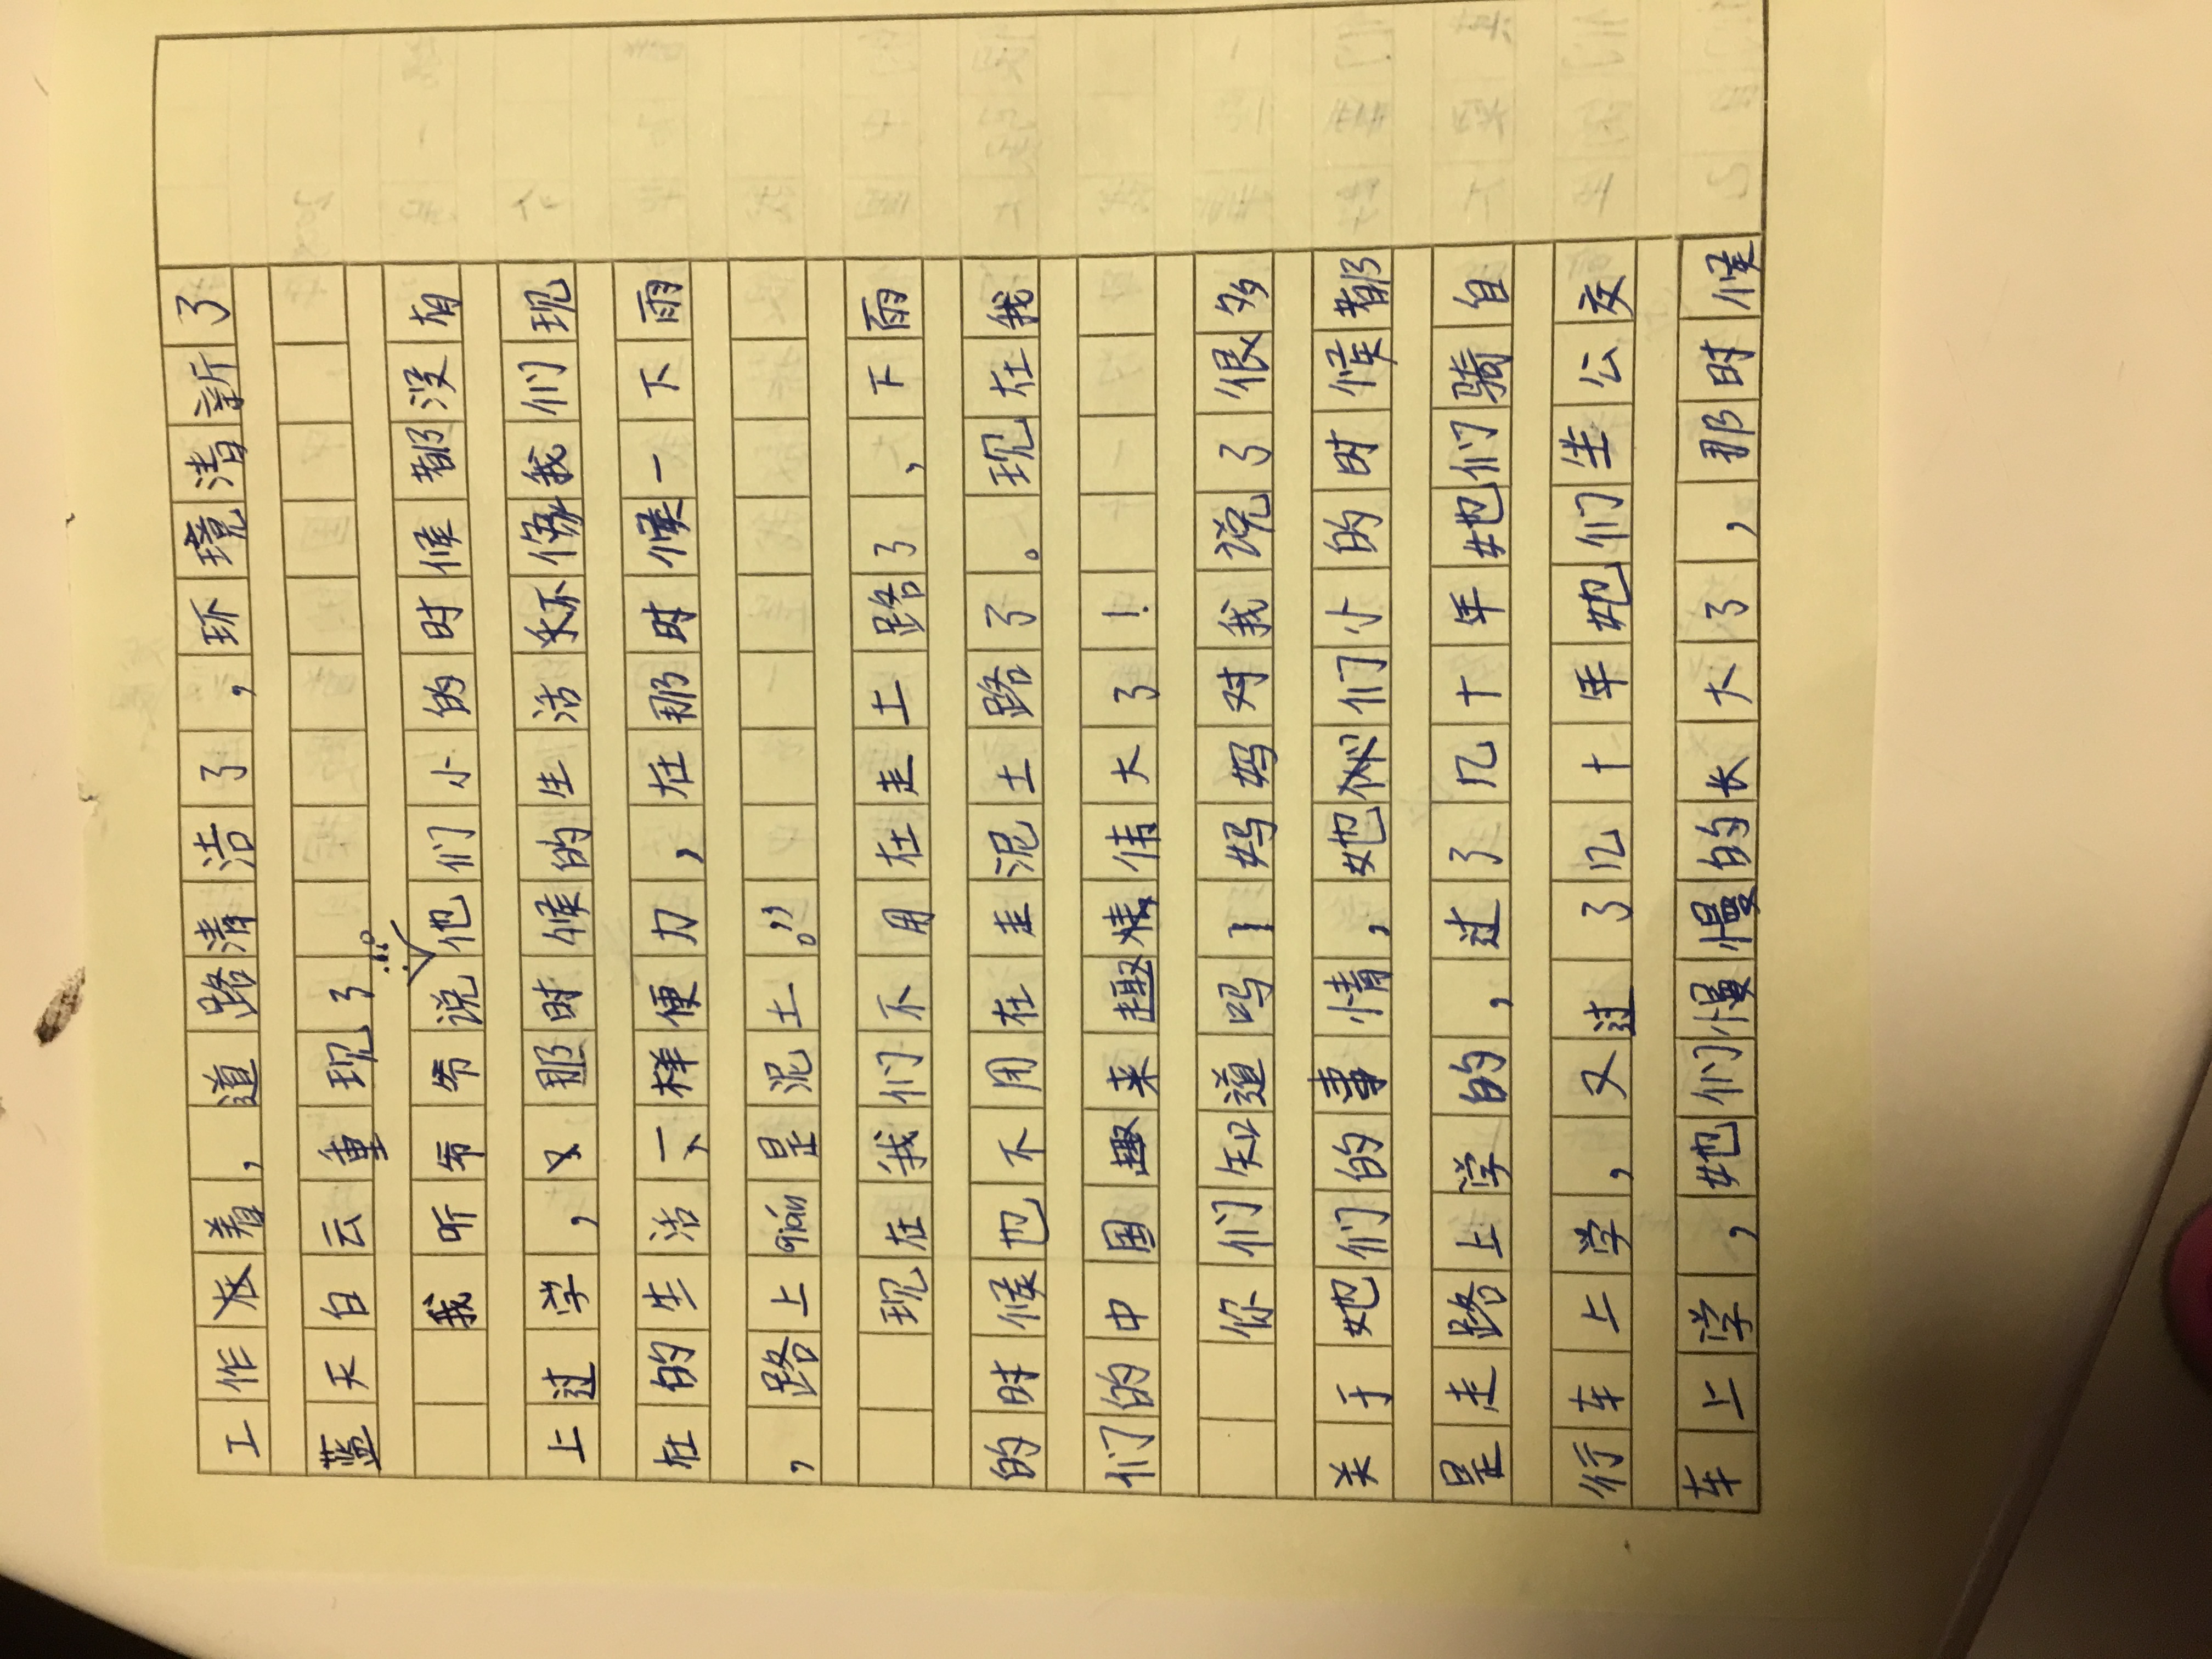 工作着,道路清洁了,环境清新了
蓝天白云重现了。
我听爷爷说:“他们小的时候都没有
上过学,那时候的生活不像我们现
在的生活一样便力,在那时候一下雨
,路上qián是泥土。”
现在我们不用在走土路了,下雨
的时候也不用在走泥土路了。现在我
们的中国趣来趣伟大了!
你们知道吗?妈妈对我说了很多
关于她们的事情,她们小的时候都
是走路上学的,过了几十年她们骑自
行车上学,又过了几十年她们坐公交
车上学,她们慢慢的长大了,那时候